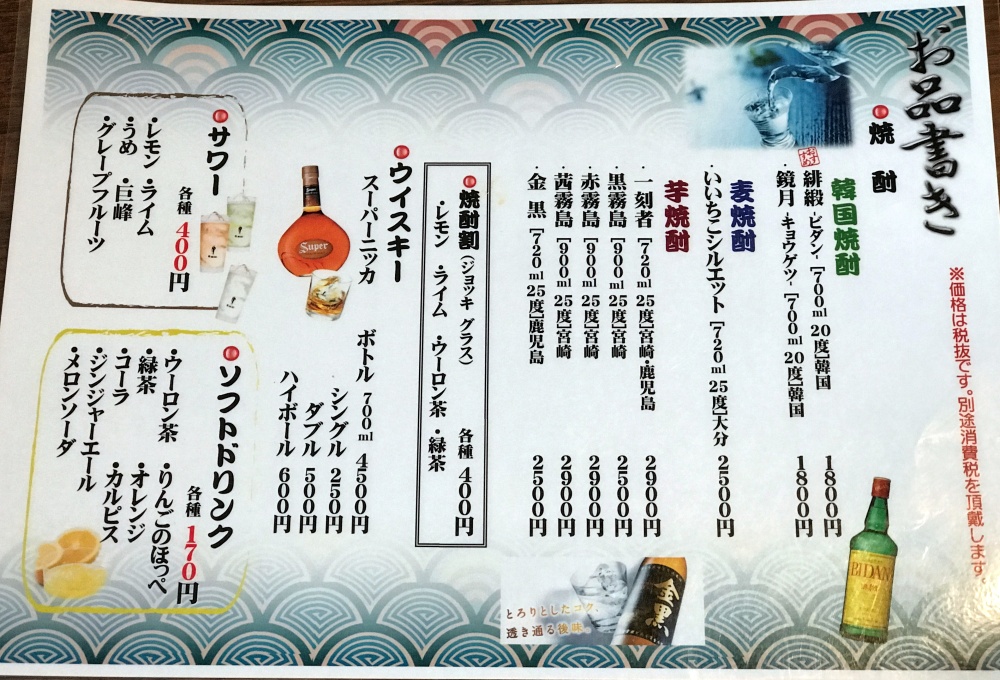 お品書き
※価格は税抜です。別途消費税を頂戴します。
焼酎
韓国焼酎
・緋緞-ビダン-[700ml 20度]韓国 1800円
・鏡月-キョウゲツ-[700ml 20度]韓国 1800円
麦焼酎
・いいちこシルエット[720ml 25度]大分 2500円
芋焼酎
・一刻者[720ml 25度]宮崎・鹿児島 2900円
・黒霧島[900ml 25度]宮崎 2500円
・赤霧島[900ml 25度]宮崎 2900円
・茜霧島[900ml 25度]宮崎 2900円
・金黒[720ml 25度]鹿児島 2500円
焼酎割(ジョッキ グラス) 各種 400円
・レモン ・ライム ・ウーロン茶 ・緑茶
ウイスキー
スーパーニッカ
ボトル 700ml 4500円
シングル 250円
ダブル 500円
ハイボール 600円
サワー
各種 400円
・レモン ・ライム
・うめ ・巨峰
・グレープフルーツ
ソフトドリンク
各種 170円
・ウーロン茶 ・りんごのほっぺ
・緑茶 ・オレンジ
・コーラ ・カルピス
・ジンジャーエール
・メロンソーダ
Super
BIDAN
金黒
とろりとしたコク、
透き通る後味。